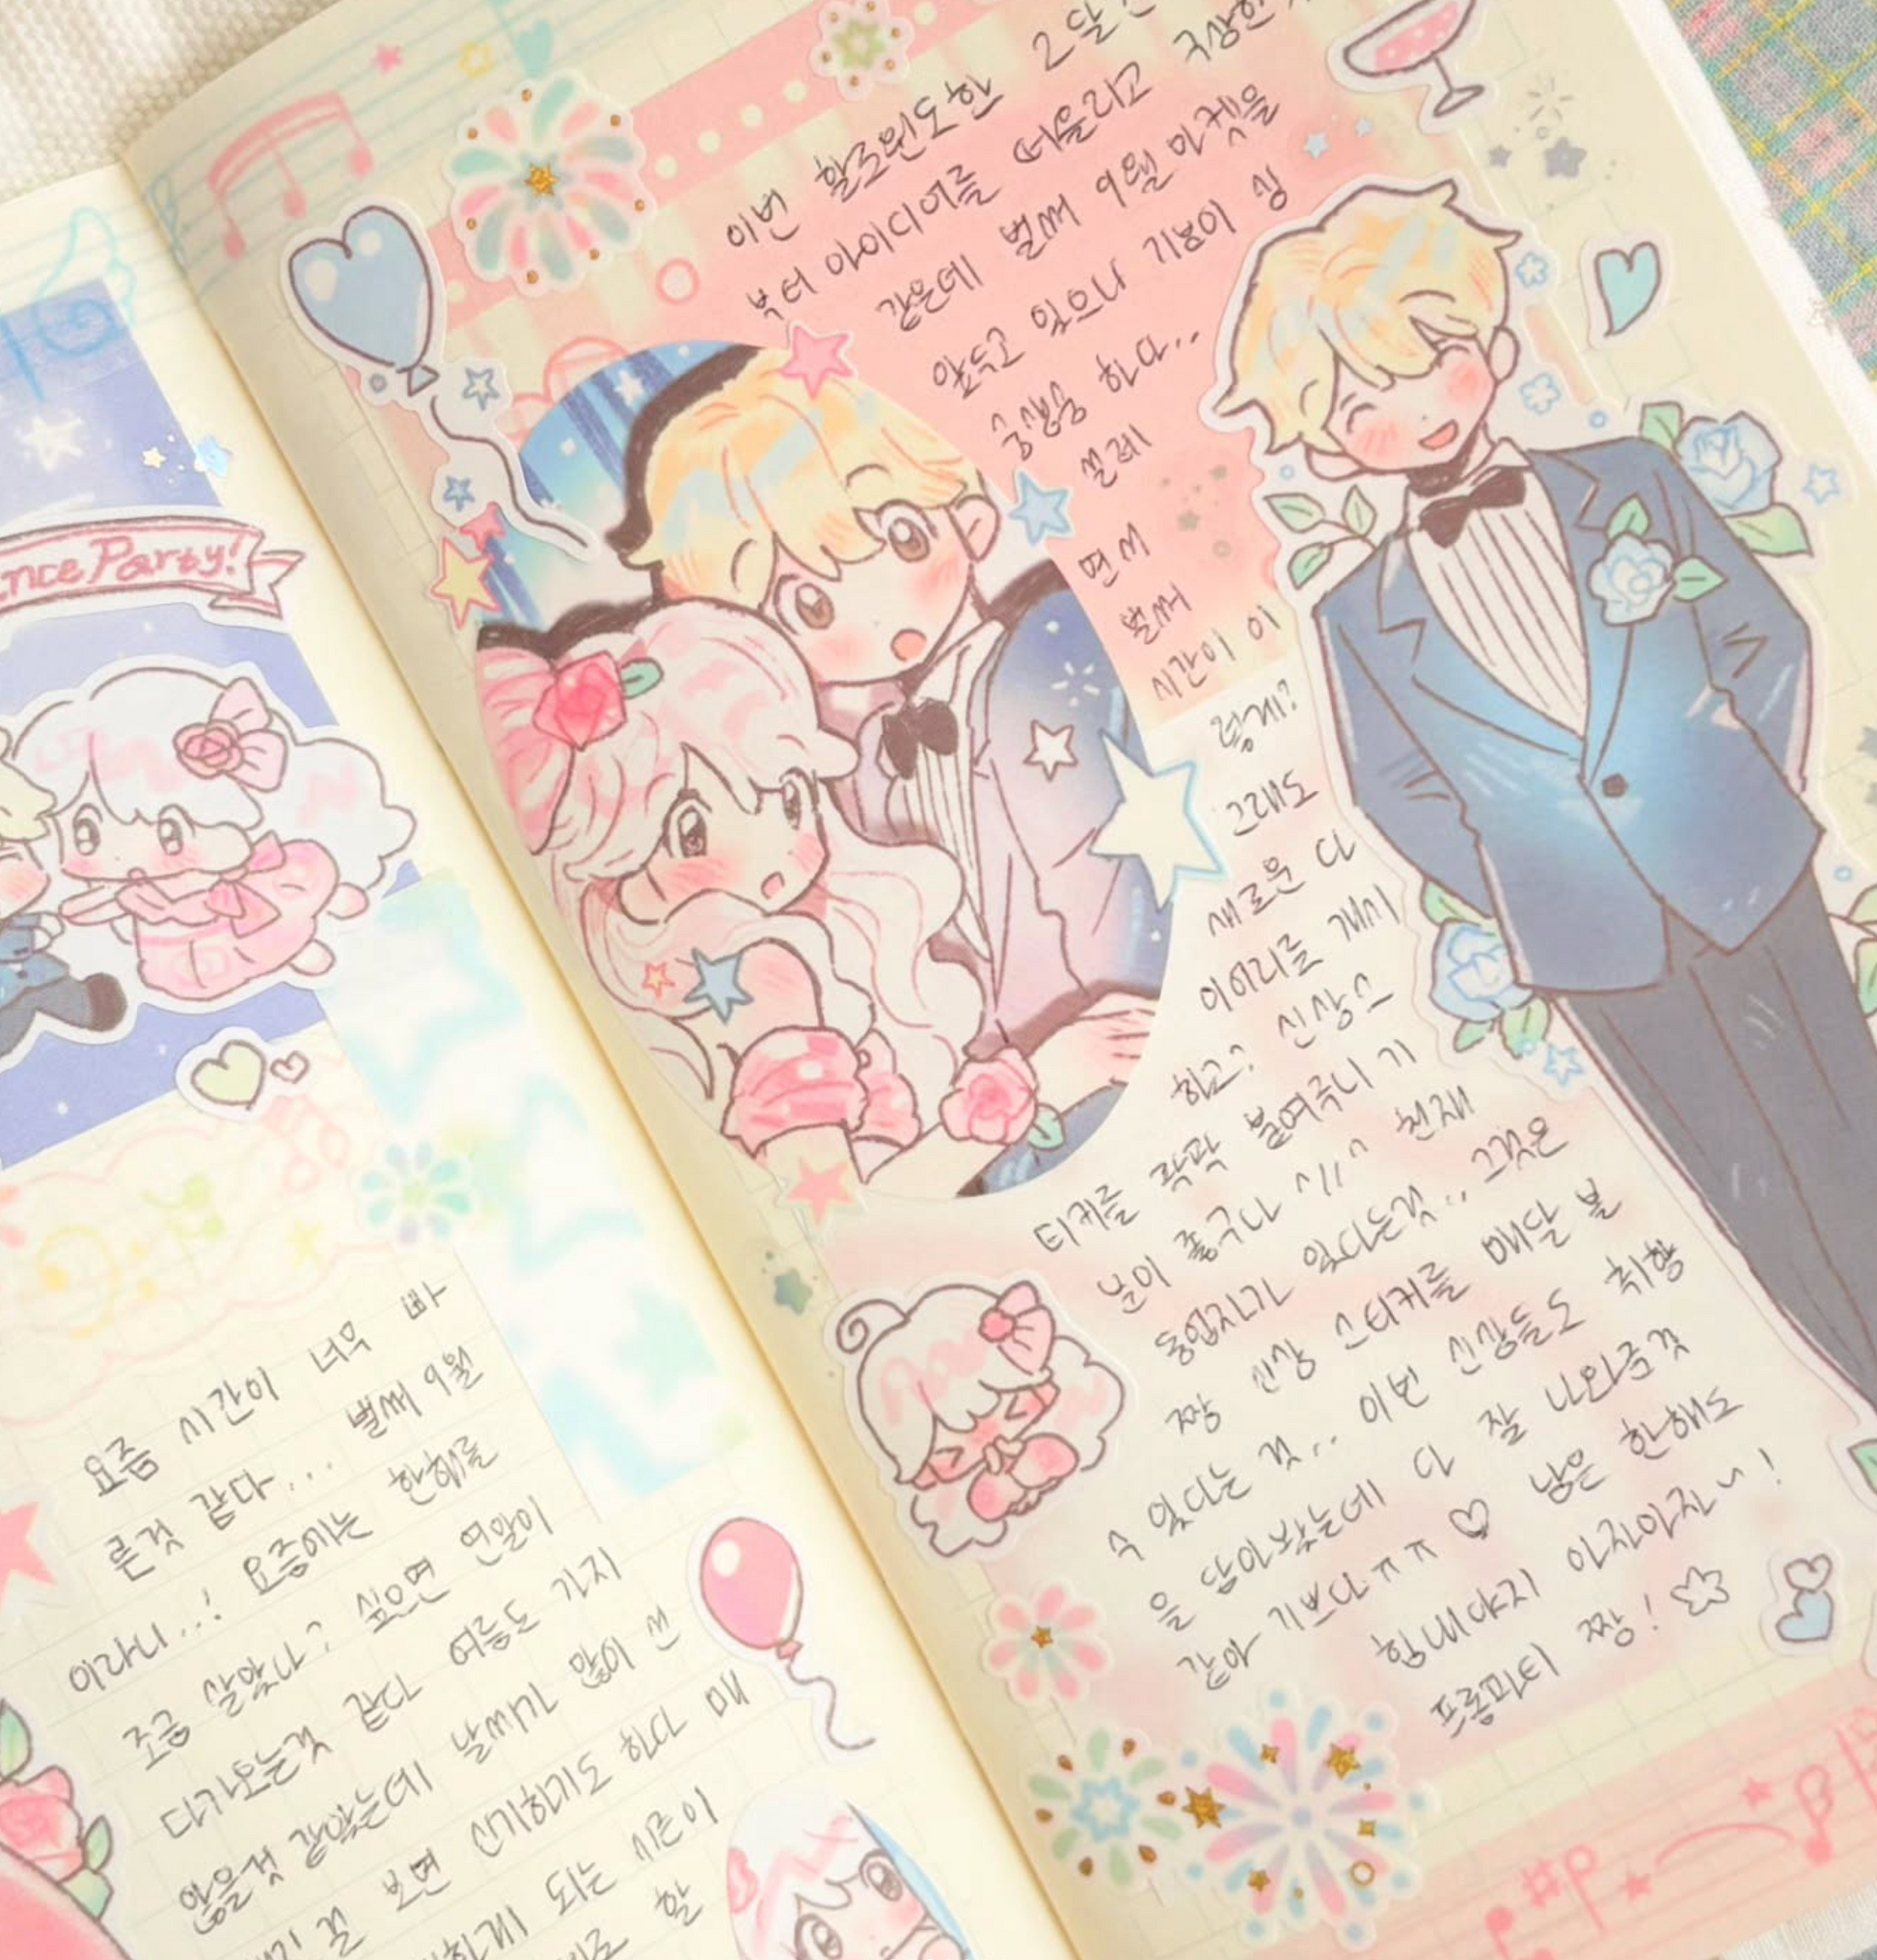 nce Party!
요즘 시간이 너무 빠
른것 같다... 벌써 9월
이라니..! 요즘에는 한해를
조금 살았나? 싶으면 연말이
다가오는것 같다 여름도 가지
않을것 같았는데 날씨가 많이 선
보면 신기하기도 하다 매
되는 시즌이
할
이번 할로윈도 한 2달 전
부터 아이디어를 떠올리고 구상한
같은데 벌써 9월 마켓을
앞두고 있으니 기분이 싱
숭생숭 하다..
설레
면서
벌써
시간이 이
렇게?
그래도
새로운 다
이어리를 개시
하고? 신상 스
티커를 팍팍 붙여주니 기
분이 좋구나 ^//^ 천재
동업자가 있다는것.. 그것은
짱 신상 스티커를 매달 볼
수 있다는 것.. 이번 신상들도 취향
을 담아봤는데 다 잘 나와준것
같아 기쁘다ㅠㅠ ♡ 남은 한해도
힘내야지 아자아자~!
프롬파티 짱! ☆